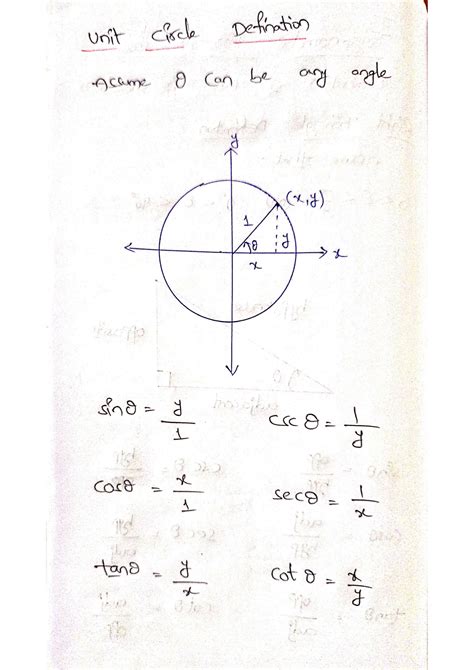 Unit Circle Defination
Assume θ can be any angle
y
(x,y)
1
θ
y
x
x
sinθ = y/1
csc θ = 1/y
cosθ = x/1
secθ = 1/x
tanθ = y/x
cot θ = x/y